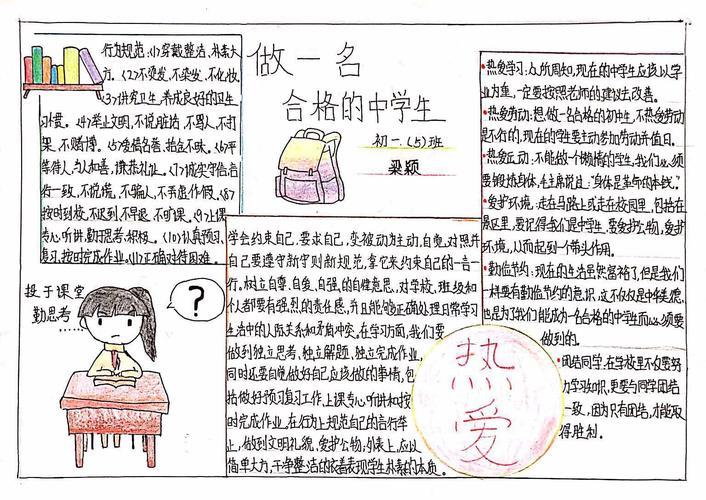 做一名
合格的中学生
初一.(5)班
梁颖
行为规范:(1)穿戴整洁、朴素大
方。(2)不烫发,不染发,不化妆,
(3)讲究卫生,养成良好的卫生
习惯。(4)举止文明,不说脏话,不骂人,不打
架,不赌博。(5)爱惜名誉,拾金不昧。(6)平
等待人,与人和善,谦恭礼让。(7)诚实守信,言
行一致,不说谎,不骗人,不弄虚作假。(8)
按时到校,不迟到,不早退,不旷课。(9)上课
专心听讲,勤于思考,积极。(10)认真预习、
复习,按时完成作业。(11)正确对待困难。
投于课堂
勤思考……
?
学会约束自己,要求自己,变被动为主动,自觉对照并
自己要遵守新守则新规范,拿它来约束自己的一言一
行,树立自尊、自爱、自强、的自律意思,对学校,班级和
个人都要有强烈的责任感,并且能够正确处理日常学习
生活中的人际关系和矛盾冲突。在学习方面,我们要
做到独立思考、独立解题,独立完成作业,
同时还要自觉做好自己应该做的事情,包
括做好预习复习工作,上课专心听讲和按
时完成作业,在行为上规范自己的言行举
止,做到文明礼貌,爱护公物,外表上,应以
简单大方,干净整洁的衣着表现学生朴素的本质。
热
爱
•热爱学习:众所周知,现在的中学生应该以学
业为重,一定要按照老师的建议去改善。
•热爱劳动:想做一名合格的初中生,不热爱劳动
是不行的,现在的学生要主动参加劳动并值日。
•热爱运动:不能做一个懒惰的学生,我们必须
要锻炼身体,毛主席说过:“身体是革命的本钱。”
•爱护环境:走在马路上或走在校园里,包括在
景区里,要记得我们是中学生,要爱护公物,爱护
环境,从而起到一个带头作用。
•勤俭节约:现在的生活虽然富裕了,但是我们
一样要有勤俭节约的意识,这不仅仅是中华美德,
也是为了我们能成为一名合格的中学生而必须要
做到的。
•团结同学:在学校里不仅要努
力学习知识,更要与同学团结
一致,因为只有团结,才能取
得胜利。